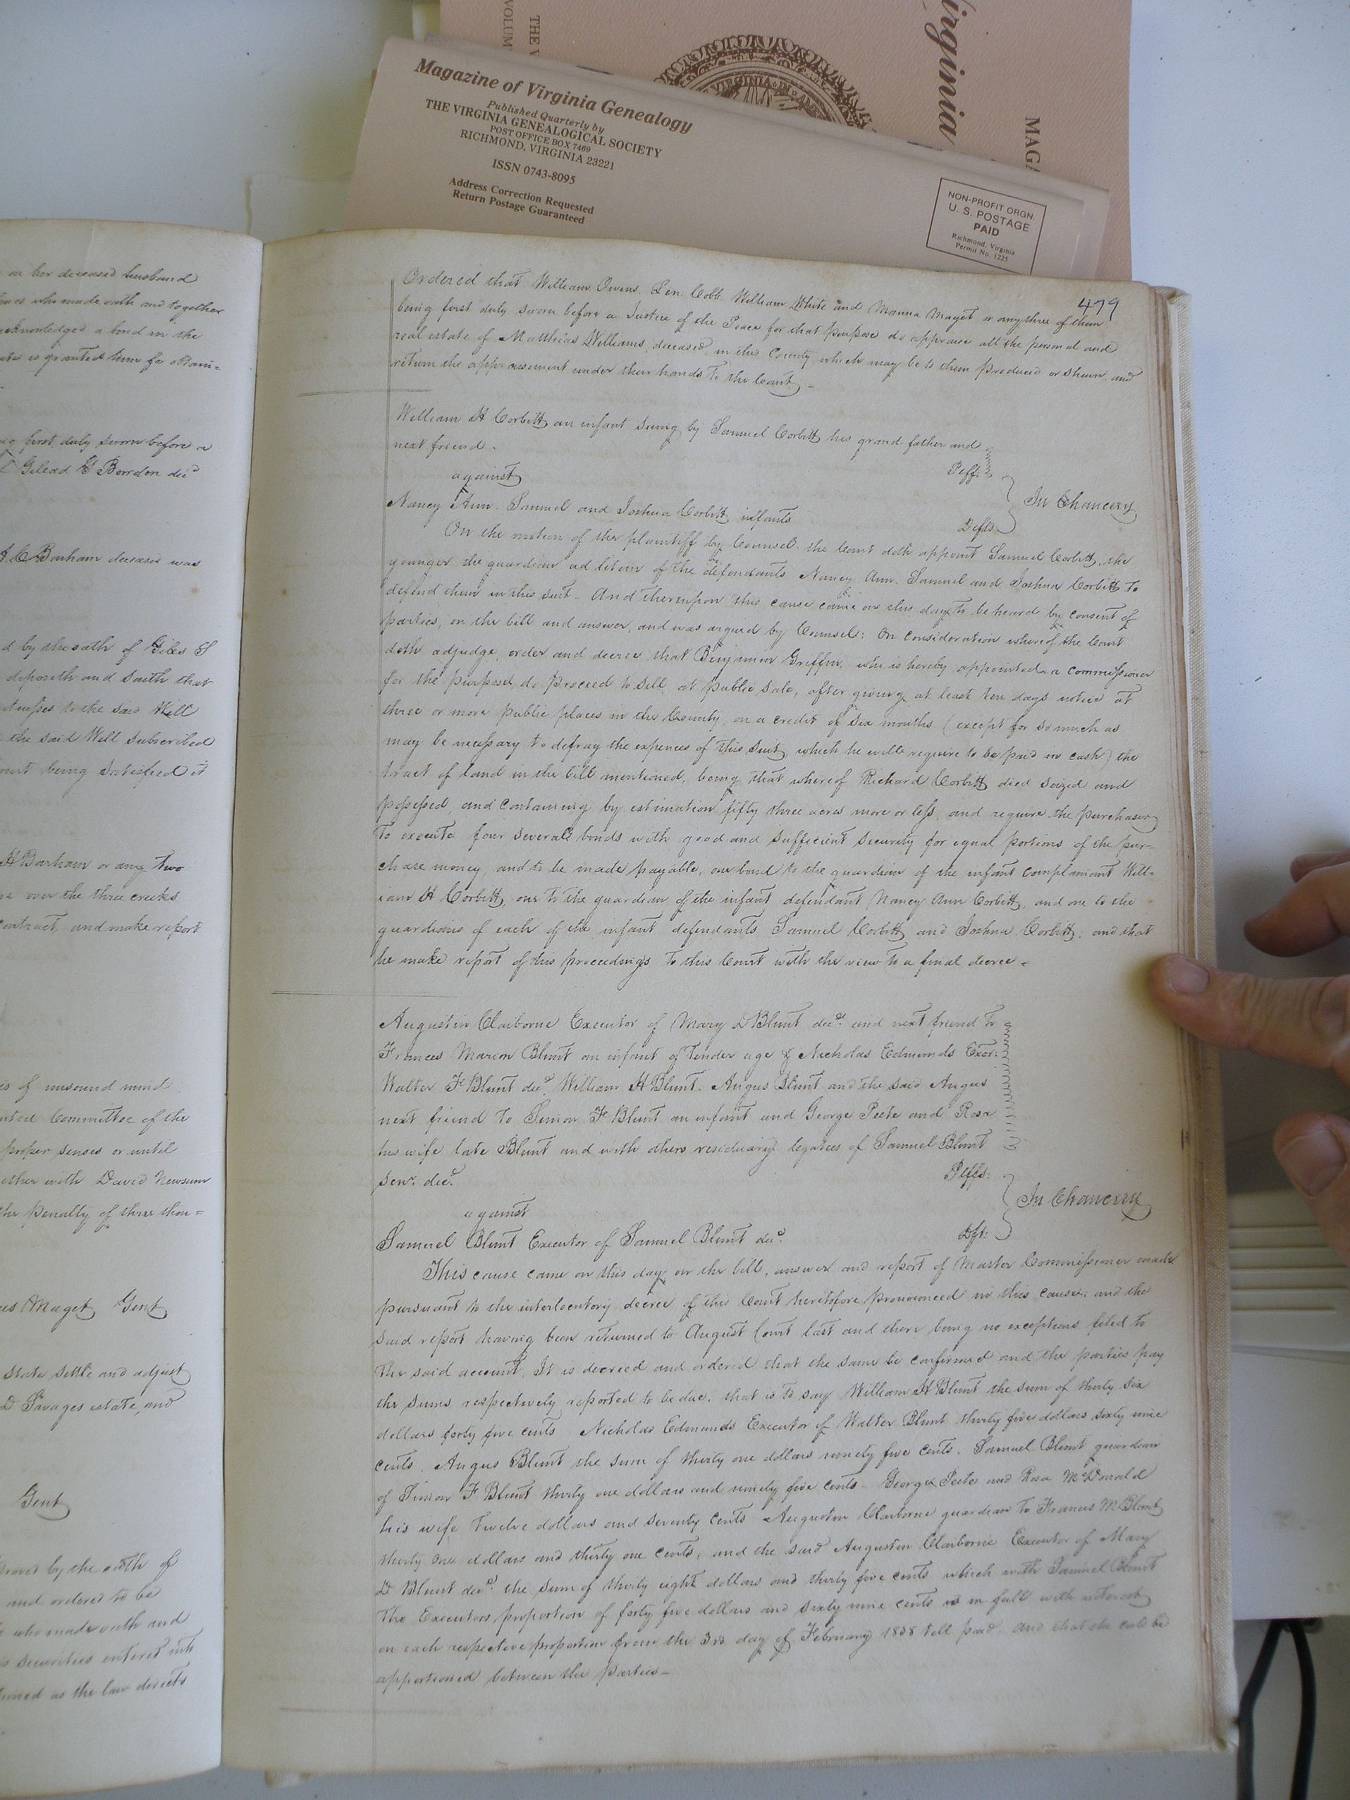 THE V
VOLUM
Virginia
MAGA
VIRGINIA
Magazine of Virginia Genealogy
Published Quarterly by
THE VIRGINIA GENEALOGICAL SOCIETY
POST OFFICE BOX 7469
RICHMOND, VIRGINIA 23221
ISSN 0743-8095
Address Correction Requested
Return Postage Guaranteed
NON-PROFIT ORGN.
U. S. POSTAGE
PAID
Richmond, Virginia
Permit No. 1225
her deceased husband
who made oath and together
acknowledged a bond in the
is granted them
first duly sworn before a
Gilead G Bowden decd
Barham deceased was
d by the oath of Giles S
deposeth and saith that
witnesses to the said Will
the said Will subscribed
Court being satisfied it
H Barham or any two
over the three creeks
contract and make report
is of unsound mind
Committee of the
proper senses or until
together with David Newsum
the penalty of three thou=
Maget Gent
state settle and adjust
D Savages estate, and
Gent
proved by the oath of
and ordered to be
who made oath and
securities entered into
as the law directs
479
Ordered that William Owens, Len Cobb, William White and Manna Maget or any three of them
being first duly sworn before a Justice of the Peace for that purpose do appraise all the personal and
real estate of Matthias Williams, deceased, in this County which may be to them produced or shewn, and
return the appraisement under their hands to the Court.-
William H Corbitt an infant suing by Samuel Corbitt his grand father and
next friend.
Plff.
against
In Chancery
Nancy Ann, Samuel and Joshua Corbitt infants
Defts
On the motion of the plaintiff by Counsel, the Court doth appoint Samuel Corbitt, the
younger the guardian ad litem of the defendants Nancy Ann, Samuel and Joshua Corbitt to
defend them in this suit. And thereupon this cause came on this day to be heard by consent of
parties, on the bill and answer, and was argued by Counsel: On consideration whereof the Court
doth adjudge, order and decree that Benjamin Griffin, who is hereby appointed a commissioner
for the purpose, do proceed to sell, at public sale, after giving at least ten days notice at
three or more public places in the County, on a credit of six months (except for so much as
may be necessary to defray the expences of this suit, which he will require to be paid in cash) the
tract of land in the bill mentioned, being that whereof Richard Corbitt died seized and
possessed and containing by estimation fifty three acres more or less, and require the purchaser
to execute four several bonds with good and sufficient security for equal portions of the pur-
chase money, and to be made payable, one bond to the guardian of the infant complainant Will-
iam H Corbitt, one to the guardian of the infant defendant Nancy Ann Corbitt, and one to the
guardians of each of the infant defendants Samuel Corbitt and Joshua Corbitt, and that
he make report of his proceedings to this Court with the view to a final decree.-
Augustin Claiborne Executor of Mary D Blunt decd. and next friend to
Frances Marion Blunt an infant of tender age & Nicholas Edmunds Exor:
Walter F Blunt decd William H Blunt, Angus Blunt and the said Angus
next friend to Simon F Blunt an infant and George Peete and Rosa
his wife late Blunt and with others residuary legatees of Samuel Blunt
Senr. decd.
Plffs:
against
In Chancery
Samuel Blunt Executor of Samuel Blunt decd.
Dft:
This cause came on this day on the bill, answer and report of Master Commissioner made
pursuant to the interlocutory decree of the Court heretofore pronounced in this cause, and the
said report having been returned to August Court last and there being no exceptions filed to
the said account, It is decreed and ordered that the same be confirmed and the parties pay
the sums respectively reported to be due, that is to say William H Blunt the sum of thirty six
dollars forty five cents Nicholas Edmunds Executor of Walter Blunt thirty five dollars sixty nine
cents. Angus Blunt the sum of thirty one dollars ninety five cents. Samuel Blunt guardian
of Simon F Blunt thirty one dollars and ninety five cents. George Peete and Rosa McDonald
his wife twelve dollars and seventy cents Augustin Claiborne guardian to Frances M Blunt
thirty one dollars and thirty one cents, and the said Augustin Claiborne Executor of Mary
D Blunt decd. the sum of thirty eight dollars and thirty five cents which with Samuel Blunt
the Executors proportion of forty five dollars and sixty nine cents is in full with interest
on each respective proportion from the 3rd day of February 1838 till paid and that the costs be
apportioned between the parties-